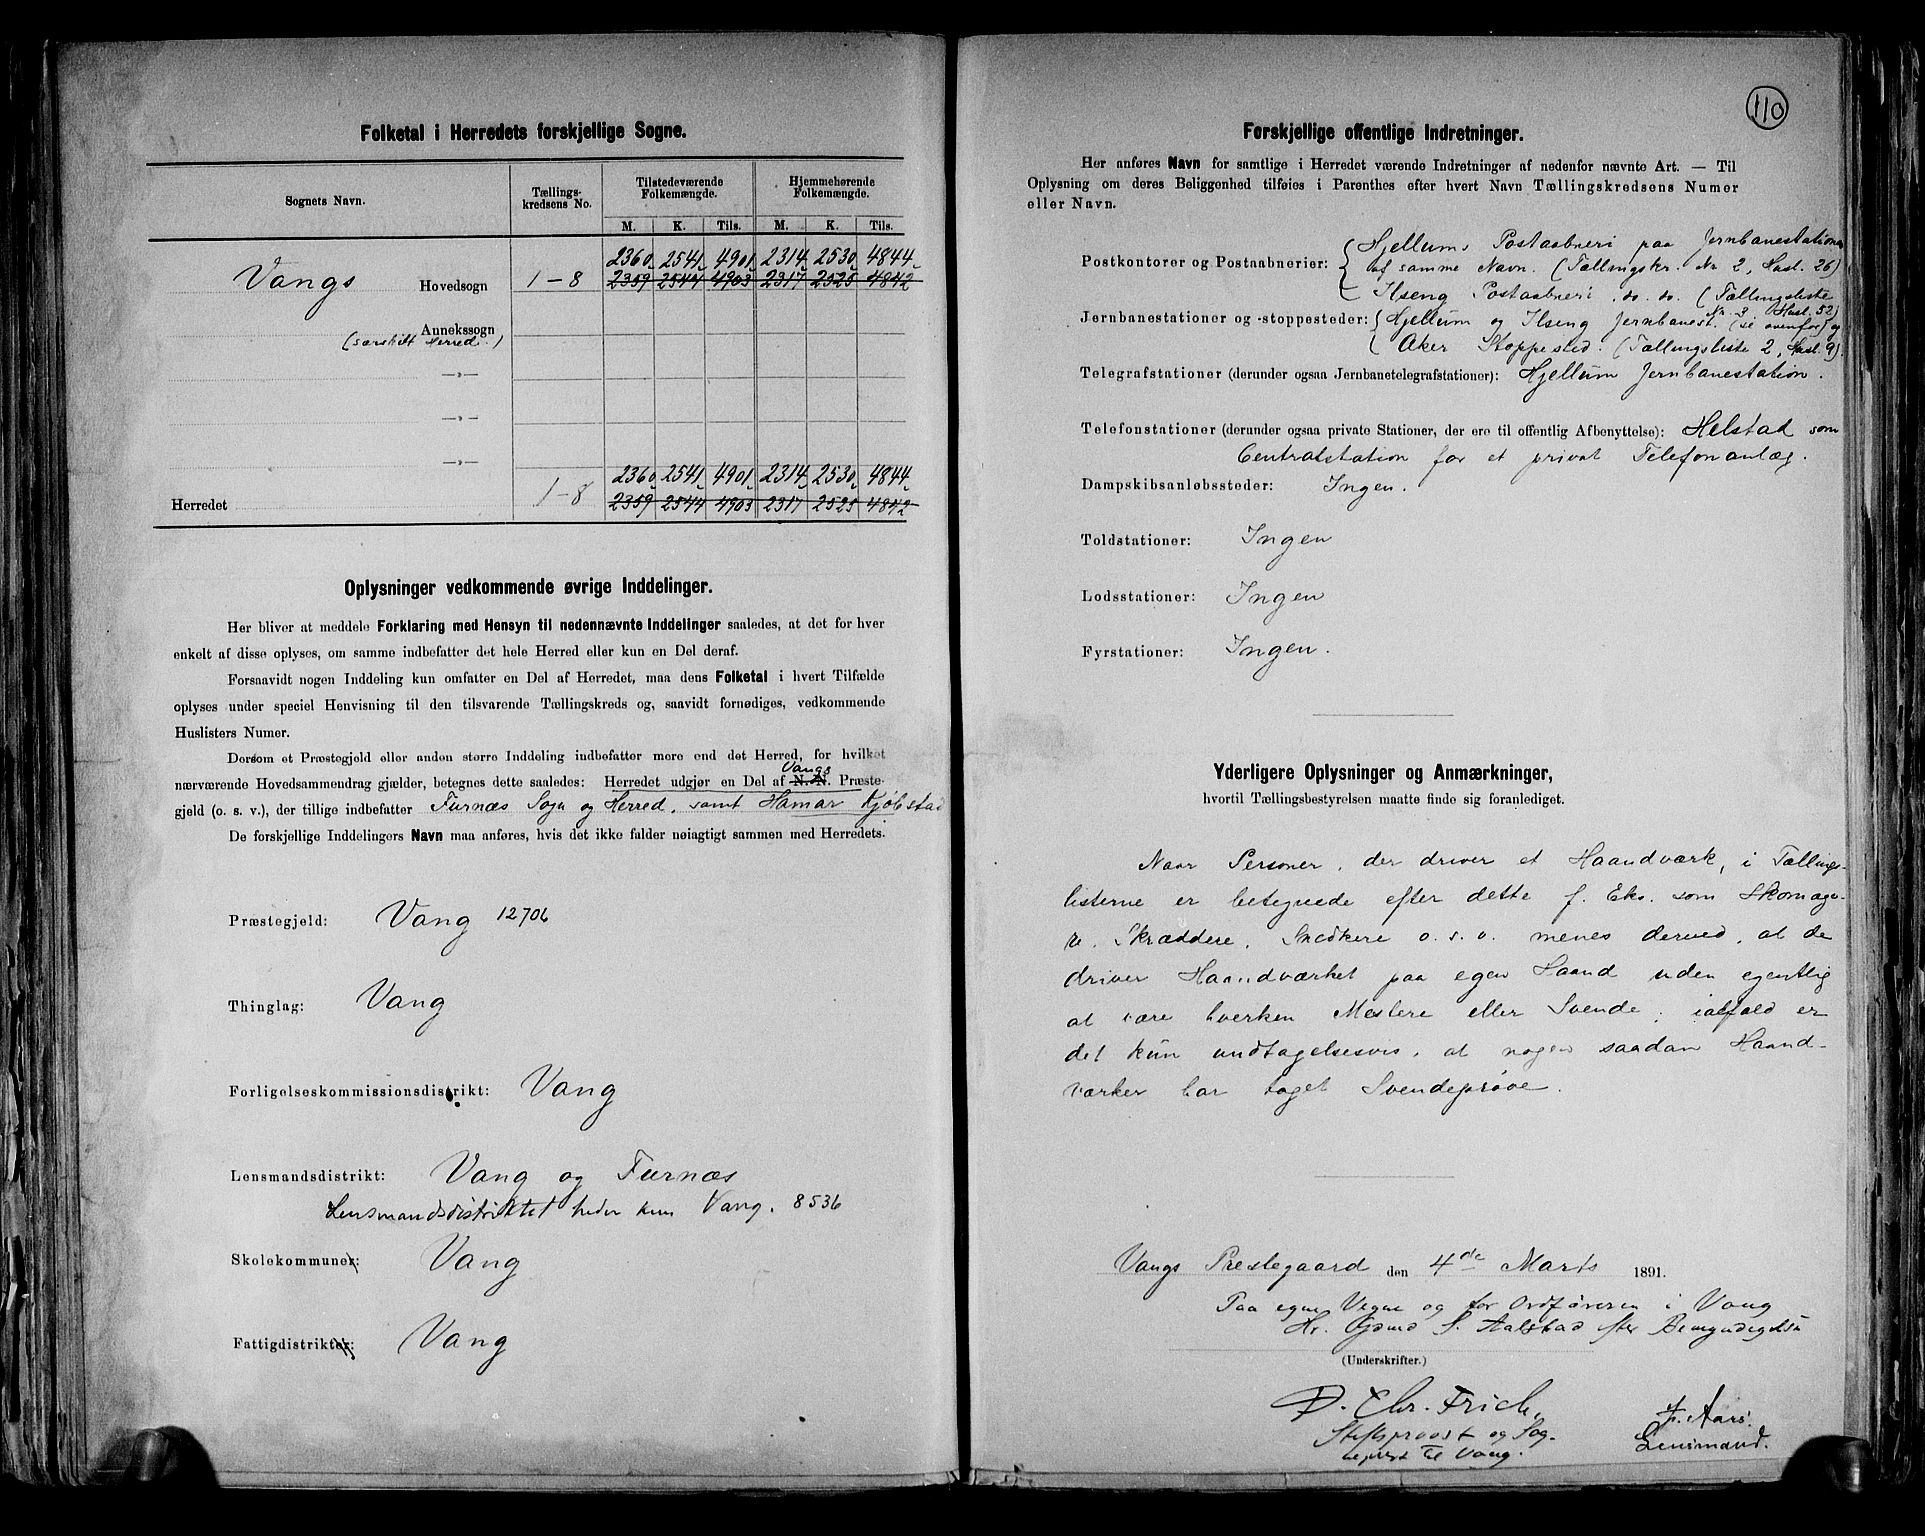 Folketal i Herredets forskjellige Sogne.
Sognets Navn. Tællings-kredsens No. Tilstedeværende Folkemængde. Hjemmehørende Folkemængde.
M. K. Tils. M. K. Tils.
2360 2541 4901 2314 2530 4844
Vangs Hovedsogn 1-8 2359 2544 4903 2317 2525 4842
Annekssogn
(særskilt Herred.)
—»—
—»—
—»—
2360 2541 4901 2314 2530 4844
Herredet 1-8 2359 2544 4903 2317 2525 4842
Oplysninger vedkommende øvrige Inddelinger.
Her bliver at meddele Forklaring med Hensyn til nedennævnte Inddelinger saaledes, at det for hver
enkelt af disse oplyses, om samme indbefatter det hele Herred eller kun en Del deraf.
Forsaavidt nogen Inddeling kun omfatter en Del af Herredet, maa dens Folketal i hvert Tilfælde
oplyses under speciel Henvisning til den tilsvarende Tællingskreds og, saavidt fornødiges, vedkommende
Huslisters Numer.
Dersom et Præstegjeld eller anden større Inddeling indbefatter mere end det Herred, for hvilket
Vangs
nærværende Hovedsammendrag gjælder, betegnes dette saaledes: Herredet udgjør en Del af N. N. Præste-
gjeld (o. s. v.), der tillige indbefatter Furnæs Sogn og Herred, samt Hamar Kjøbstad
De forskjellige Inddelingers Navn maa anføres, hvis det ikke falder nøiagtigt sammen med Herredets.
Præstegjeld: Vang 12706
Thinglag: Vang
Forligelseskommissionsdistrikt: Vang
Lensmandsdistrikt: Vang og Furnæs
Lensmandsdistriktet heder kun Vang. 8536
Skolekommuner: Vang
Fattigdistrikter: Vang
110
Forskjellige offentlige Indretninger.
Her anføres Navn for samtlige i Herredet værende Indretninger af nedenfor nævnte Art. — Til
Oplysning om deres Beliggenhed tilføies i Parenthes efter hvert Navn Tællingskredsens Numer
eller Navn.
Hjellums Postaabneri paa Jernbanestationen
Postkontorer og Postaabnerier: af samme Navn. (Tællingskr. Nr 2, Husl. 26)
Ilseng Postaabneri do. do. (Tællingsliste
Nr 3 Husl. 52)
Jernbanestationer og -stoppesteder: Hjellum og Ilseng Jernbanest. (se ovenfor) og
Aker Stoppested. (Tællingsliste 2, Husl. 9).
Telegrafstationer (derunder ogsaa Jernbanetelegrafstationer): Hjellum Jernbanestation.
Telefonstationer (derunder ogsaa private Stationer, der ere til offentlig Afbenyttelse): Helstad som
Centralstation for et privat Telefonanlæg.
Dampskibsanløbssteder: Ingen.
Toldstationer: Ingen
Lodsstationer: Ingen
Fyrstationer: Ingen.
Yderligere Oplysninger og Anmærkninger,
hvortil Tællingsbestyrelsen maatte finde sig foranlediget.
Naar Personer, der driver et Haandværk, i Tællings-
listerne er betegnede efter dette f. Eks. som Skomage-
re, Skræddere, Snedkere o. s. v. menes derved, at de
driver Haandværket paa egen Haand uden egentlig
at være hverken Mestere eller Svende; ialfald er
det kun undtagelsesvis, at nogen saadan Haand-
værker har taget Svendeprøve.
Vangs Prestegaard den 4de Marts 1891.
Paa egne Vegne og for Ordføreren i Vang
Hr. S. Aalstad efter Bemyndigelse
(Underskrifter.)
D. Chr. Frich, F. Aars.
Stiftsprovst og Sog- Lensmand.
nepræst til Vang.